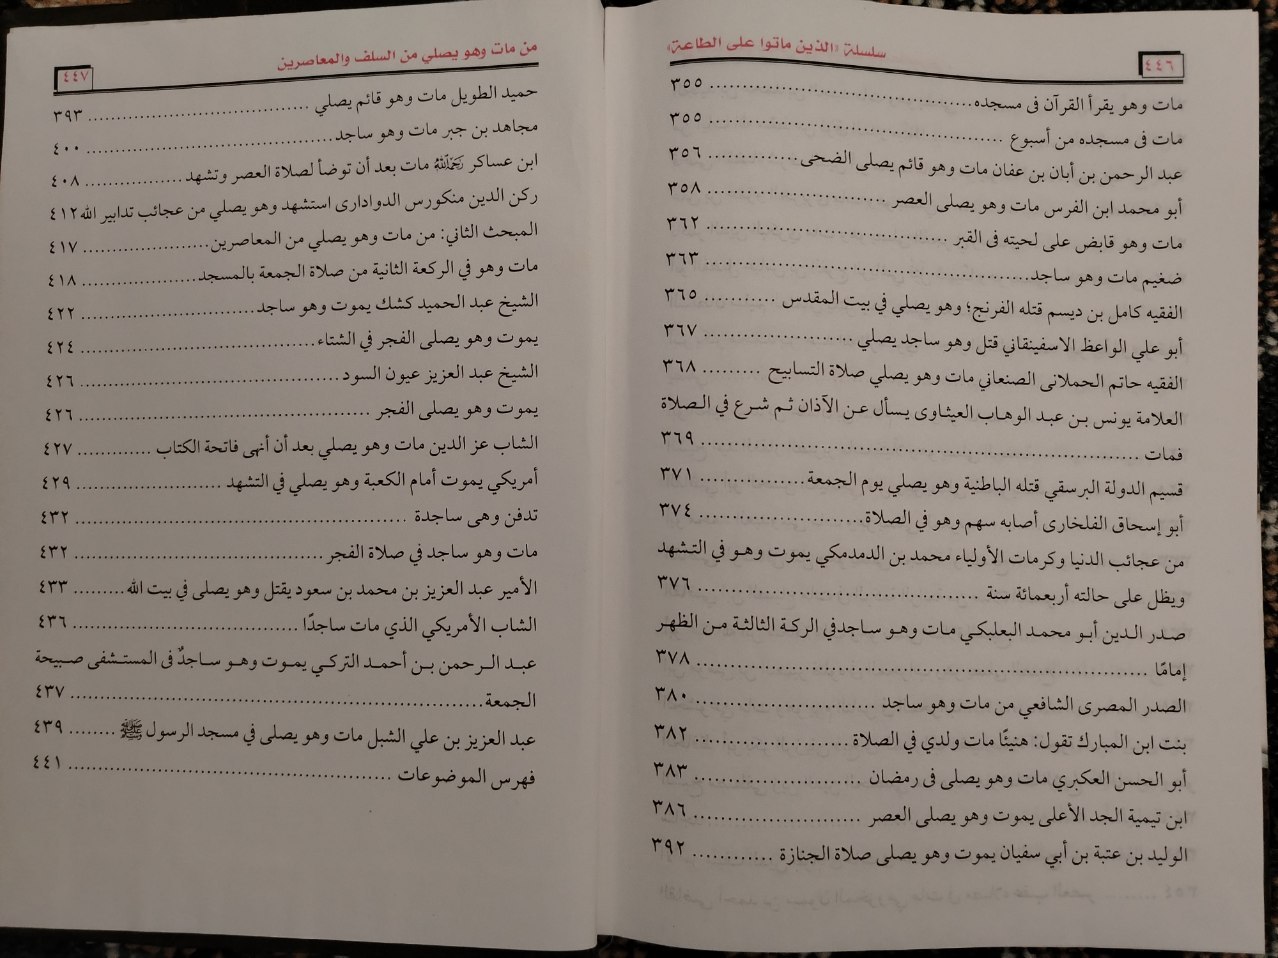 ٤٤٦
سلسلة «الذين ماتوا على الطاعة»
مات وهو يقرأ القرآن فى مسجده ........ ٣٥٥
مات فى مسجده من أسبوع ........ ٣٥٥
عبد الرحمن بن أبان بن عفان مات وهو قائم يصلى الضحى ........ ٣٥٦
أبو محمد ابن الفرس مات وهو يصلى العصر ........ ٣٥٨
مات وهو قابض على لحيته فى القبر ........ ٣٦٢
ضغيم مات وهو ساجد ........ ٣٦٣
الفقيه كامل بن ديسم قتله الفرنج؛ وهو يصلي في بيت المقدس ........ ٣٦٥
أبو علي الواعظ الاسفينقاني قتل وهو ساجد يصلي ........ ٣٦٧
الفقيه حاتم الحملانى الصنعاني مات وهو يصلي صلاة التسابيح ........ ٣٦٨
العلامة يونس بن عبد الوهاب العيثاوى يسأل عن الآذان ثم شرع في الصلاة
فمات ........ ٣٦٩
قسيم الدولة البرسقي قتله الباطنية وهو يصلي يوم الجمعة ........ ٣٧١
أبو إسحاق الفلخارى أصابه سهم وهو في الصلاة ........ ٣٧٤
من عجائب الدنيا وكرمات الأولياء محمد بن الدمدمكي يموت وهو في التشهد
ويظل على حالته أربعمائة سنة ........ ٣٧٦
صدر الدين أبو محمد البعلبكي مات وهو ساجدفي الركة الثالثة من الظهر
إمامًا ........ ٣٧٨
الصدر المصرى الشافعي من مات وهو ساجد ........ ٣٨٠
بنت ابن المبارك تقول: هنيئًا مات ولدي في الصلاة ........ ٣٨٢
أبو الحسن العكبري مات وهو يصلى فى رمضان ........ ٣٨٣
ابن تيمية الجد الأعلى يموت وهو يصلى العصر ........ ٣٨٦
الوليد بن عتبة بن أبي سفيان يموت وهو يصلى صلاة الجنازة ........ ٣٩٢
من مات وهو يصلي من السلف والمعاصرين
٤٤٧
حميد الطويل مات وهو قائم يصلي ........ ٣٩٣
مجاهد بن جبر مات وهو ساجد ........ ٤٠٠
ابن عساكر رحمه الله مات بعد أن توضأ لصلاة العصر وتشهد ........ ٤٠٨
ركن الدين منكورس الدوادارى استشهد وهو يصلي من عجائب تدابير الله ٤١٢
المبحث الثاني: من مات وهو يصلي من المعاصرين ........ ٤١٧
مات وهو في الركعة الثانية من صلاة الجمعة بالمسجد ........ ٤١٨
الشيخ عبد الحميد كشك يموت وهو ساجد ........ ٤٢٢
يموت وهو يصلى الفجر في الشتاء ........ ٤٢٤
الشيخ عبد العزيز عيون السود ........ ٤٢٦
يموت وهو يصلى الفجر ........ ٤٢٦
الشاب عز الدين مات وهو يصلي بعد أن أنهى فاتحة الكتاب ........ ٤٢٧
أمريكي يموت أمام الكعبة وهو يصلي في التشهد ........ ٤٢٩
تدفن وهى ساجدة ........ ٤٣٢
مات وهو ساجد في صلاة الفجر ........ ٤٣٢
الأمير عبد العزيز بن محمد بن سعود يقتل وهو يصلى في بيت الله ........ ٤٣٣
الشاب الأمريكي الذي مات ساجدًا ........ ٤٣٦
عبد الرحمن بن أحمد التركي يموت وهو ساجدٌ فى المستشفى صبيحة
الجمعة ........ ٤٣٧
عبد العزيز بن علي الشبل مات وهو يصلى في مسجد الرسول ﷺ ........ ٤٣٩
فهرس الموضوعات ........ ٤٤١